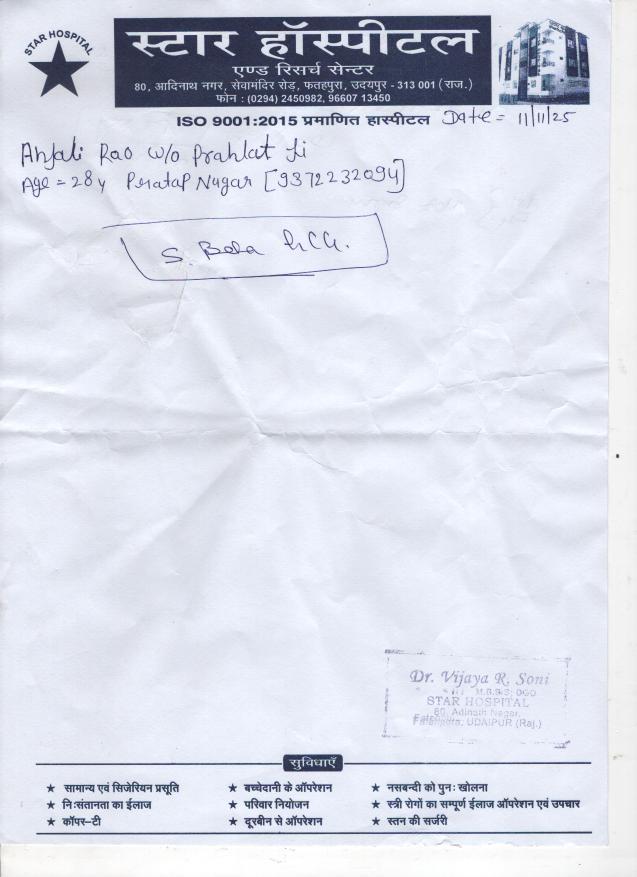 STAR HOSPITAL
स्टार हॉस्पीटल
एण्ड रिसर्च सेन्टर
80, आदिनाथ नगर, सेवामंदिर रोड़, फतहपुरा, उदयपुर - 313 001 (राज.)
फोन : (0294) 2450982, 96607 13450
ISO 9001:2015 प्रमाणित हास्पीटल Date = 11/11/25
Anjali Rao w/o Prahlat Ji
Age = 28 y Peratap Nagar [9372232094]
S. Beta hCG.
Dr. Vijaya R. Soni
M.B.B.S; DGO
STAR HOSPITAL
80, Adinath Nagar,
Fatehpura, UDAIPUR (Raj.)
सुविधाएँ
★ सामान्य एवं सिजेरियन प्रसूति ★ बच्चेदानी के ऑपरेशन ★ नसबन्दी को पुनः खोलना
★ निःसंतानता का ईलाज ★ परिवार नियोजन ★ स्त्री रोगों का सम्पूर्ण ईलाज ऑपरेशन एवं उपचार
★ कॉपर-टी ★ दूरबीन से ऑपरेशन ★ स्तन की सर्जरी